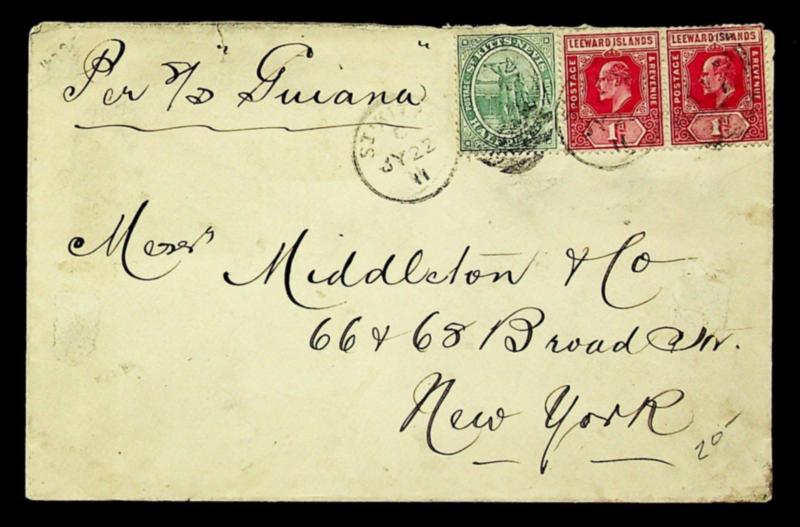 Per S/S "Guiana"
ST KITTS-NEVIS
LEEWARD ISLANDS
POSTAGE & REVENUE
1d
LEEWARD ISLANDS
POSTAGE & REVENUE
1d
C
JY 22
11
Messrs
Middleton & Co
66 & 68 Broad Str.
New York
20